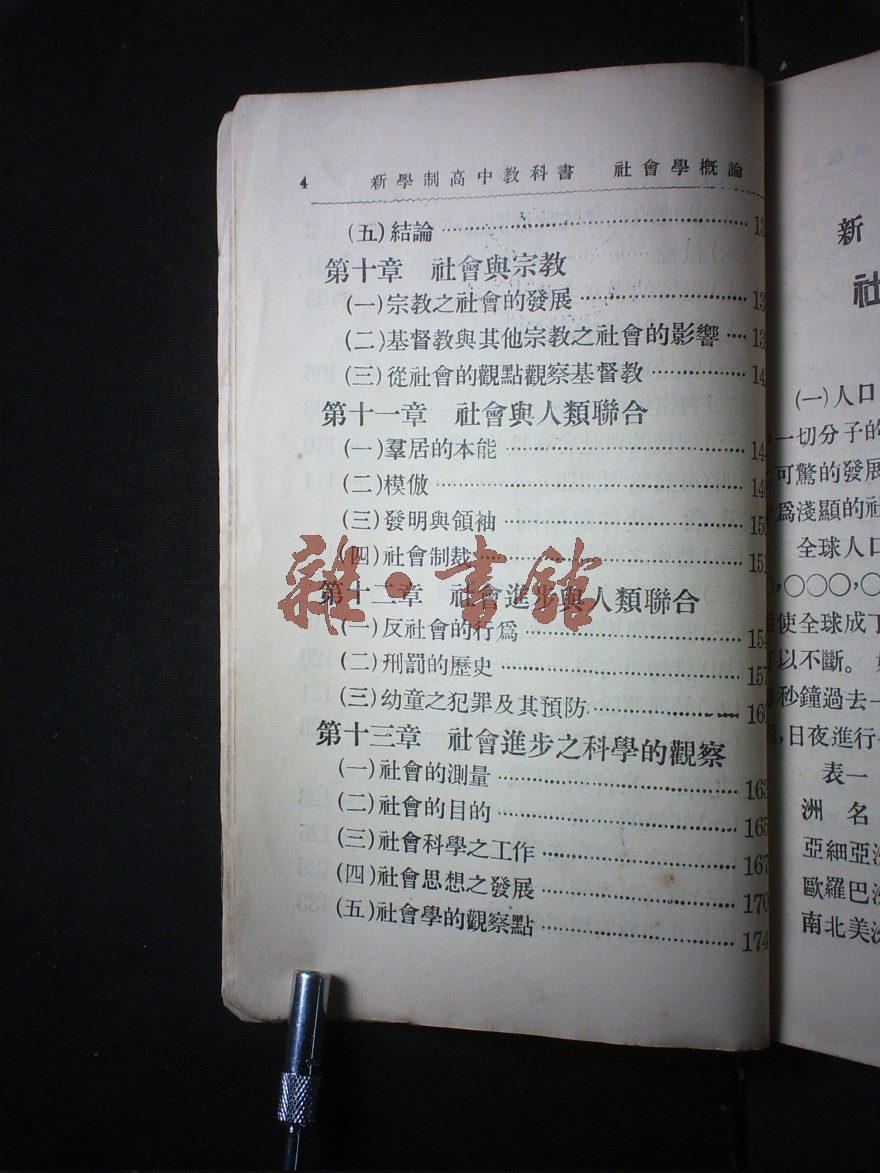 4 新學制高中教科書 社會學概論
(五)結論 13
第十章 社會與宗教
(一)宗教之社會的發展 13
(二)基督教與其他宗教之社會的影響 13
(三)從社會的觀點觀察基督教 14
第十一章 社會與人類聯合
(一)羣居的本能 14
(二)模倣 14
(三)發明與領袖 15
(四)社會制裁 15
第十二章 社會進步與人類聯合
(一)反社會的行爲 154
(二)刑罰的歷史 157
(三)幼童之犯罪及其預防 160
第十三章 社會進步之科學的觀察
(一)社會的測量 163
(二)社會的目的 165
(三)社會科學之工作 167
(四)社會思想之發展 170
(五)社會學的觀察點 174
雜·書館
新
社
(一)人口
一切分子的
可驚的發展
爲淺顯的社
全球人口
,○○○,○
使全球成了
以不斷。
秒鐘過去一
,日夜進行
表一
洲名
亞細亞洲
歐羅巴洲
南北美洲